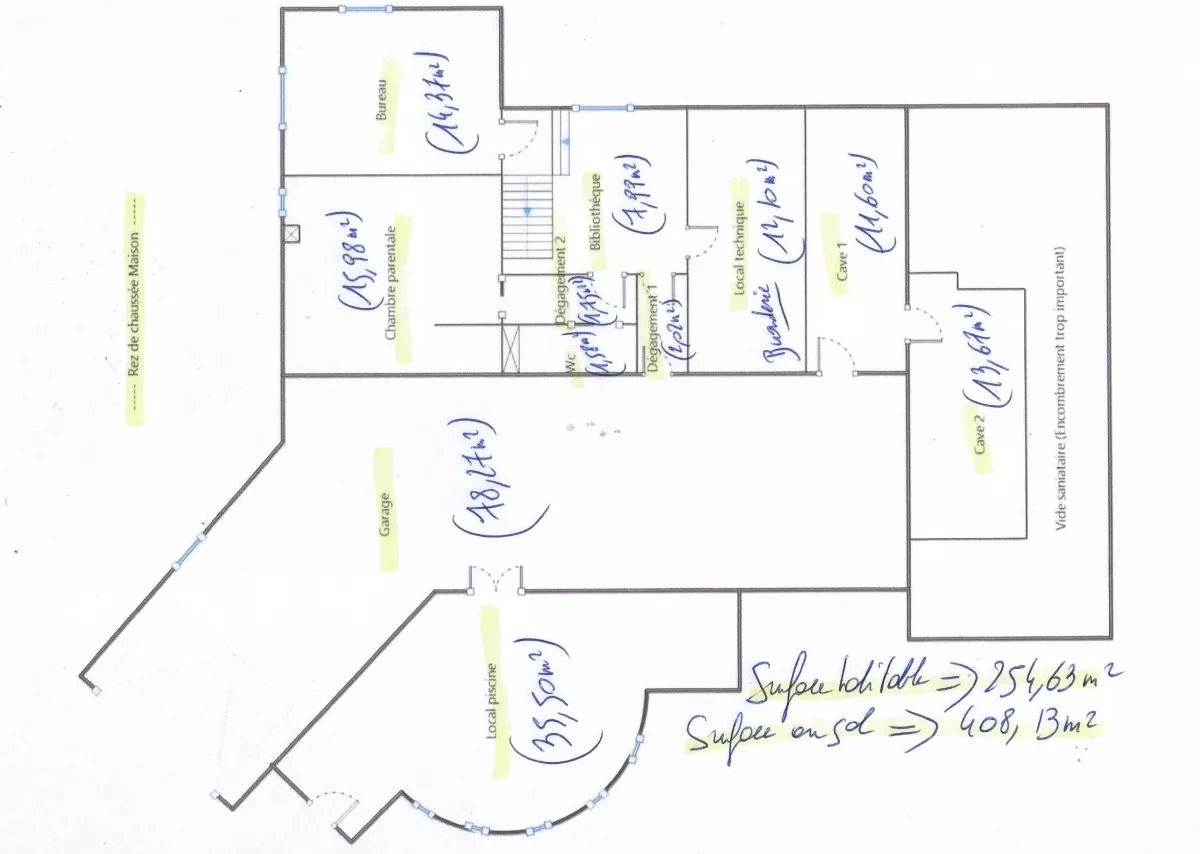 ----- Rez de chaussée Maison -----
Bureau
(14,37m²)
Chambre parentale
(15,98m²)
Bibliothèque
(7,99m²)
Dégagement 2
(1,75m²)
Wc
(1,58m²)
Dégagement 1
(2,02m²)
Local technique
Buanderie (12,10m²)
Cave 1
(11,60m²)
Cave 2
(13,67m²)
Vide saniataire (Encombrement trop important)
Garage
(78,27m²)
Local piscine
(35,50m²)
Surface habitable => 254,63 m²
Surface au sol => 408,13 m²